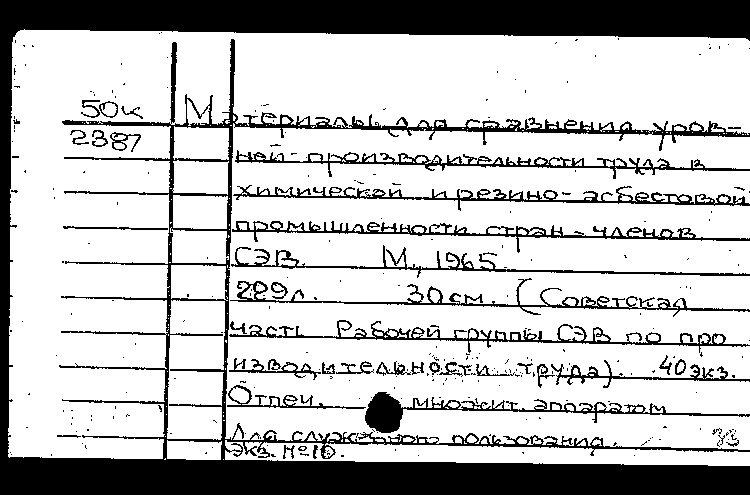 50к Материалы для сравнения уров-
2387 ней производительности труда в
химической и резино-асбестовой
промышленности стран-членов
СЭВ. М., 1965
289л. 30см. (Советская
часть Рабочей группы СЭВ по про
изводительности труда). 40экз.
Отпеч. множит. аппаратом
Для служебного пользования.
Экз. №10.